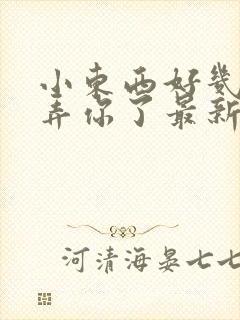 小东西好几
弄你了最新
河清海晏七七